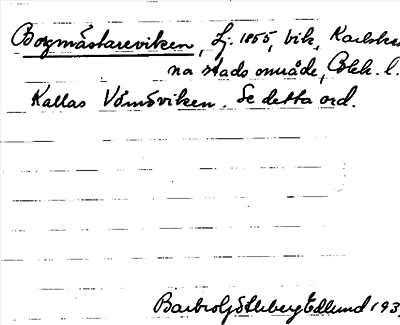 Borgmästareviken, f. 1855, vik, Karlskro
na stads område, Blek. l.
Kallas Vämöviken. Se detta ord.
Edlund 193